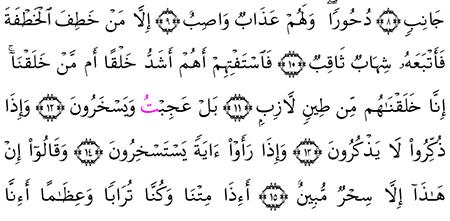 جَانِبٍ ﴿٨﴾ دُحُورًا ۖ وَلَهُمْ عَذَابٌ وَاصِبٌ ﴿٩﴾ إِلَّا مَنْ خَطِفَ ٱلْخَطْفَةَ
فَأَتْبَعَهُۥ شِهَابٌ ثَاقِبٌ ﴿١٠﴾ فَٱسْتَفْتِهِمْ أَهُمْ أَشَدُّ خَلْقًا أَم مَّنْ خَلَقْنَآ ۚ
إِنَّا خَلَقْنَـٰهُم مِّن طِينٍ لَّازِبٍۭ ﴿١١﴾ بَلْ عَجِبْتُ وَيَسْخَرُونَ ﴿١٢﴾ وَإِذَا
ذُكِّرُوا۟ لَا يَذْكُرُونَ ﴿١٣﴾ وَإِذَا رَأَوْا۟ ءَايَةً يَسْتَسْخِرُونَ ﴿١٤﴾ وَقَالُوٓا۟ إِنْ
هَـٰذَآ إِلَّا سِحْرٌ مُّبِينٌ ﴿١٥﴾ أَءِذَا مِتْنَا وَكُنَّا تُرَابًا وَعِظَـٰمًا أَءِنَّا